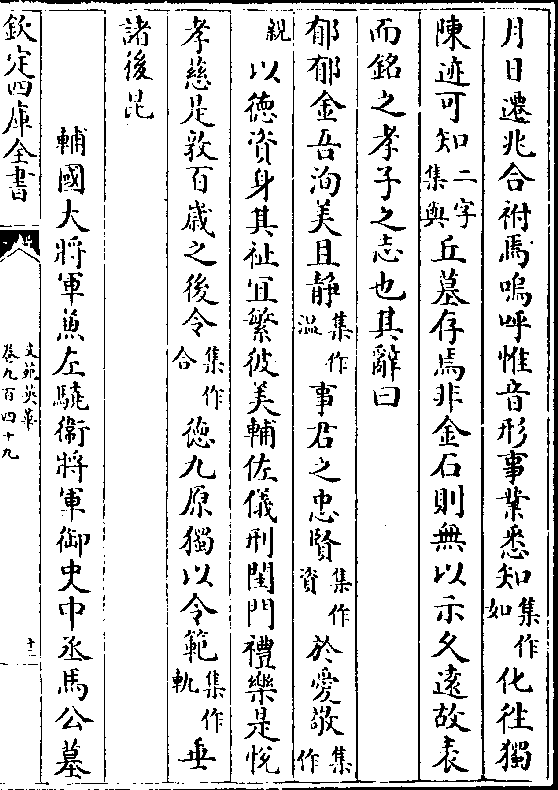 月日遷兆合祔焉嗚呼惟音形事業悉知集作如化往獨
陳迹可知二字集與丘墓存焉非金石則無以示久遠故表
而銘之孝子之志也其辭曰
郁郁金吾洵美且靜集作溢事君之忠賢集作資於愛敬集作
親以德資身其祉宜繁彼美輔佐儀刑閨門禮樂是悅
孝慈是敦百歲之後令集作合德九原獨以令範集作軌垂
諸後昆
輔國大將軍兼左驍衛將軍御史中丞馬公墓
欽定四庫全書
文苑英華
卷九百四十九
十二